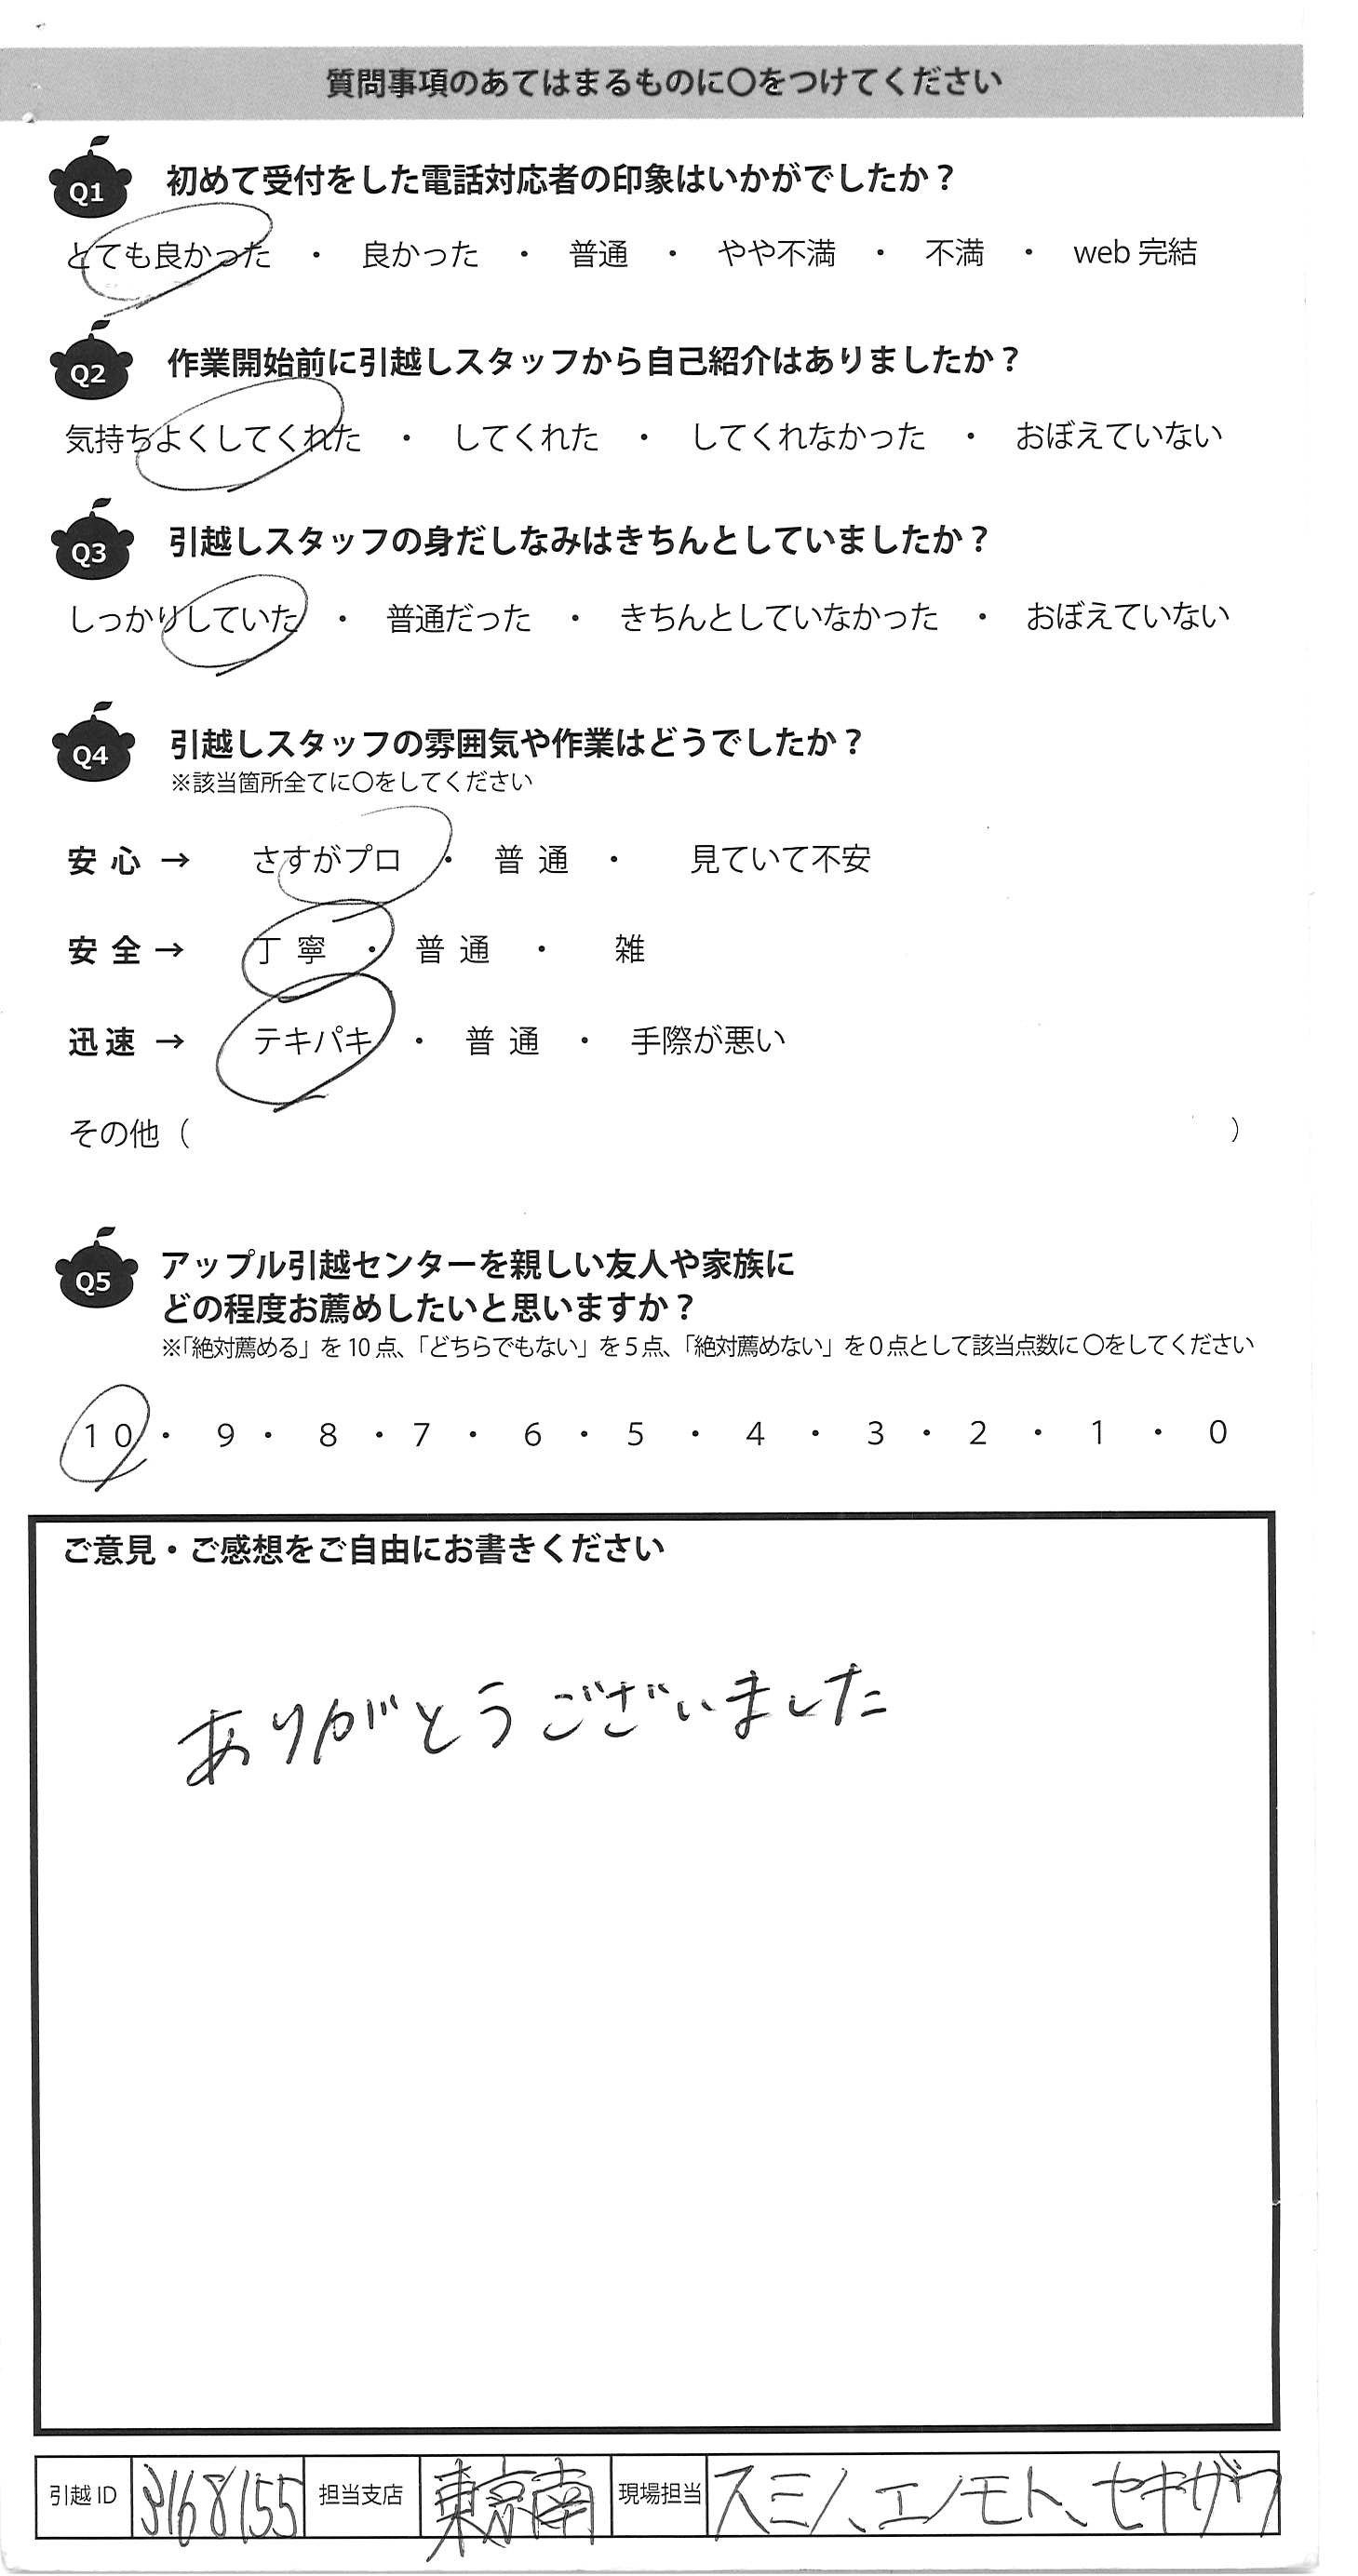 質問事項のあてはまるものに〇をつけてください
Q1 初めて受付をした電話対応者の印象はいかがでしたか？
とても良かった ・ 良かった ・ 普通 ・ やや不満 ・ 不満 ・ web 完結
Q2 作業開始前に引越しスタッフから自己紹介はありましたか？
気持ちよくしてくれた ・ してくれた ・ してくれなかった ・ おぼえていない
Q3 引越しスタッフの身だしなみはきちんとしていましたか？
しっかりしていた ・ 普通だった ・ きちんとしていなかった ・ おぼえていない
Q4 引越しスタッフの雰囲気や作業はどうでしたか？
※該当箇所全てに〇をしてください
安 心 → さすがプロ ・ 普 通 ・ 見ていて不安
安 全 → 丁 寧 ・ 普 通 ・ 雑
迅 速 → テキパキ ・ 普 通 ・ 手際が悪い
その他（ ）
Q5 アップル引越センターを親しい友人や家族に
どの程度お薦めしたいと思いますか？
※「絶対薦める」を 10 点、「どちらでもない」を 5 点、「絶対薦めない」を 0 点として該当点数に 〇をしてください
10 ・ 9 ・ 8 ・ 7 ・ 6 ・ 5 ・ 4 ・ 3 ・ 2 ・ 1 ・ 0
ご意見・ご感想をご自由にお書きください
ありがとうございました
引越 ID 3168155 担当支店 東京南 現場担当 スミノ、エノモト、セキザワ